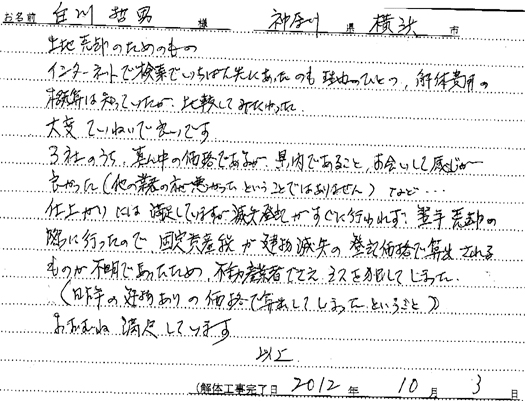 お名前 白川 哲男 様 神奈川 県 横浜 市
土地売却のためのもの
インターネットで検索でいちばん先にあったのも理由のひとつ、解体費用の
概算は知っていたが、比較してみたかった
大変ていねいで良いです
3社のうち、真ん中の価格であるが、県内であること、お会いして感じが
良かった(他の業者の 悪かったということではありません)など…
仕上がりには満足していますが滅失登記がすぐに行われず、翌年売却の
際に行ったので 固定資産税が建物滅失の登記価格で算出される
ものが不明であったため、不動産業者でさえミスを犯してしまった。
(昨年の建物ありの価格で算出してしまったということ)
おおむね満足しています
以上
(解体工事完了日 2012 年 10 月 3 日)